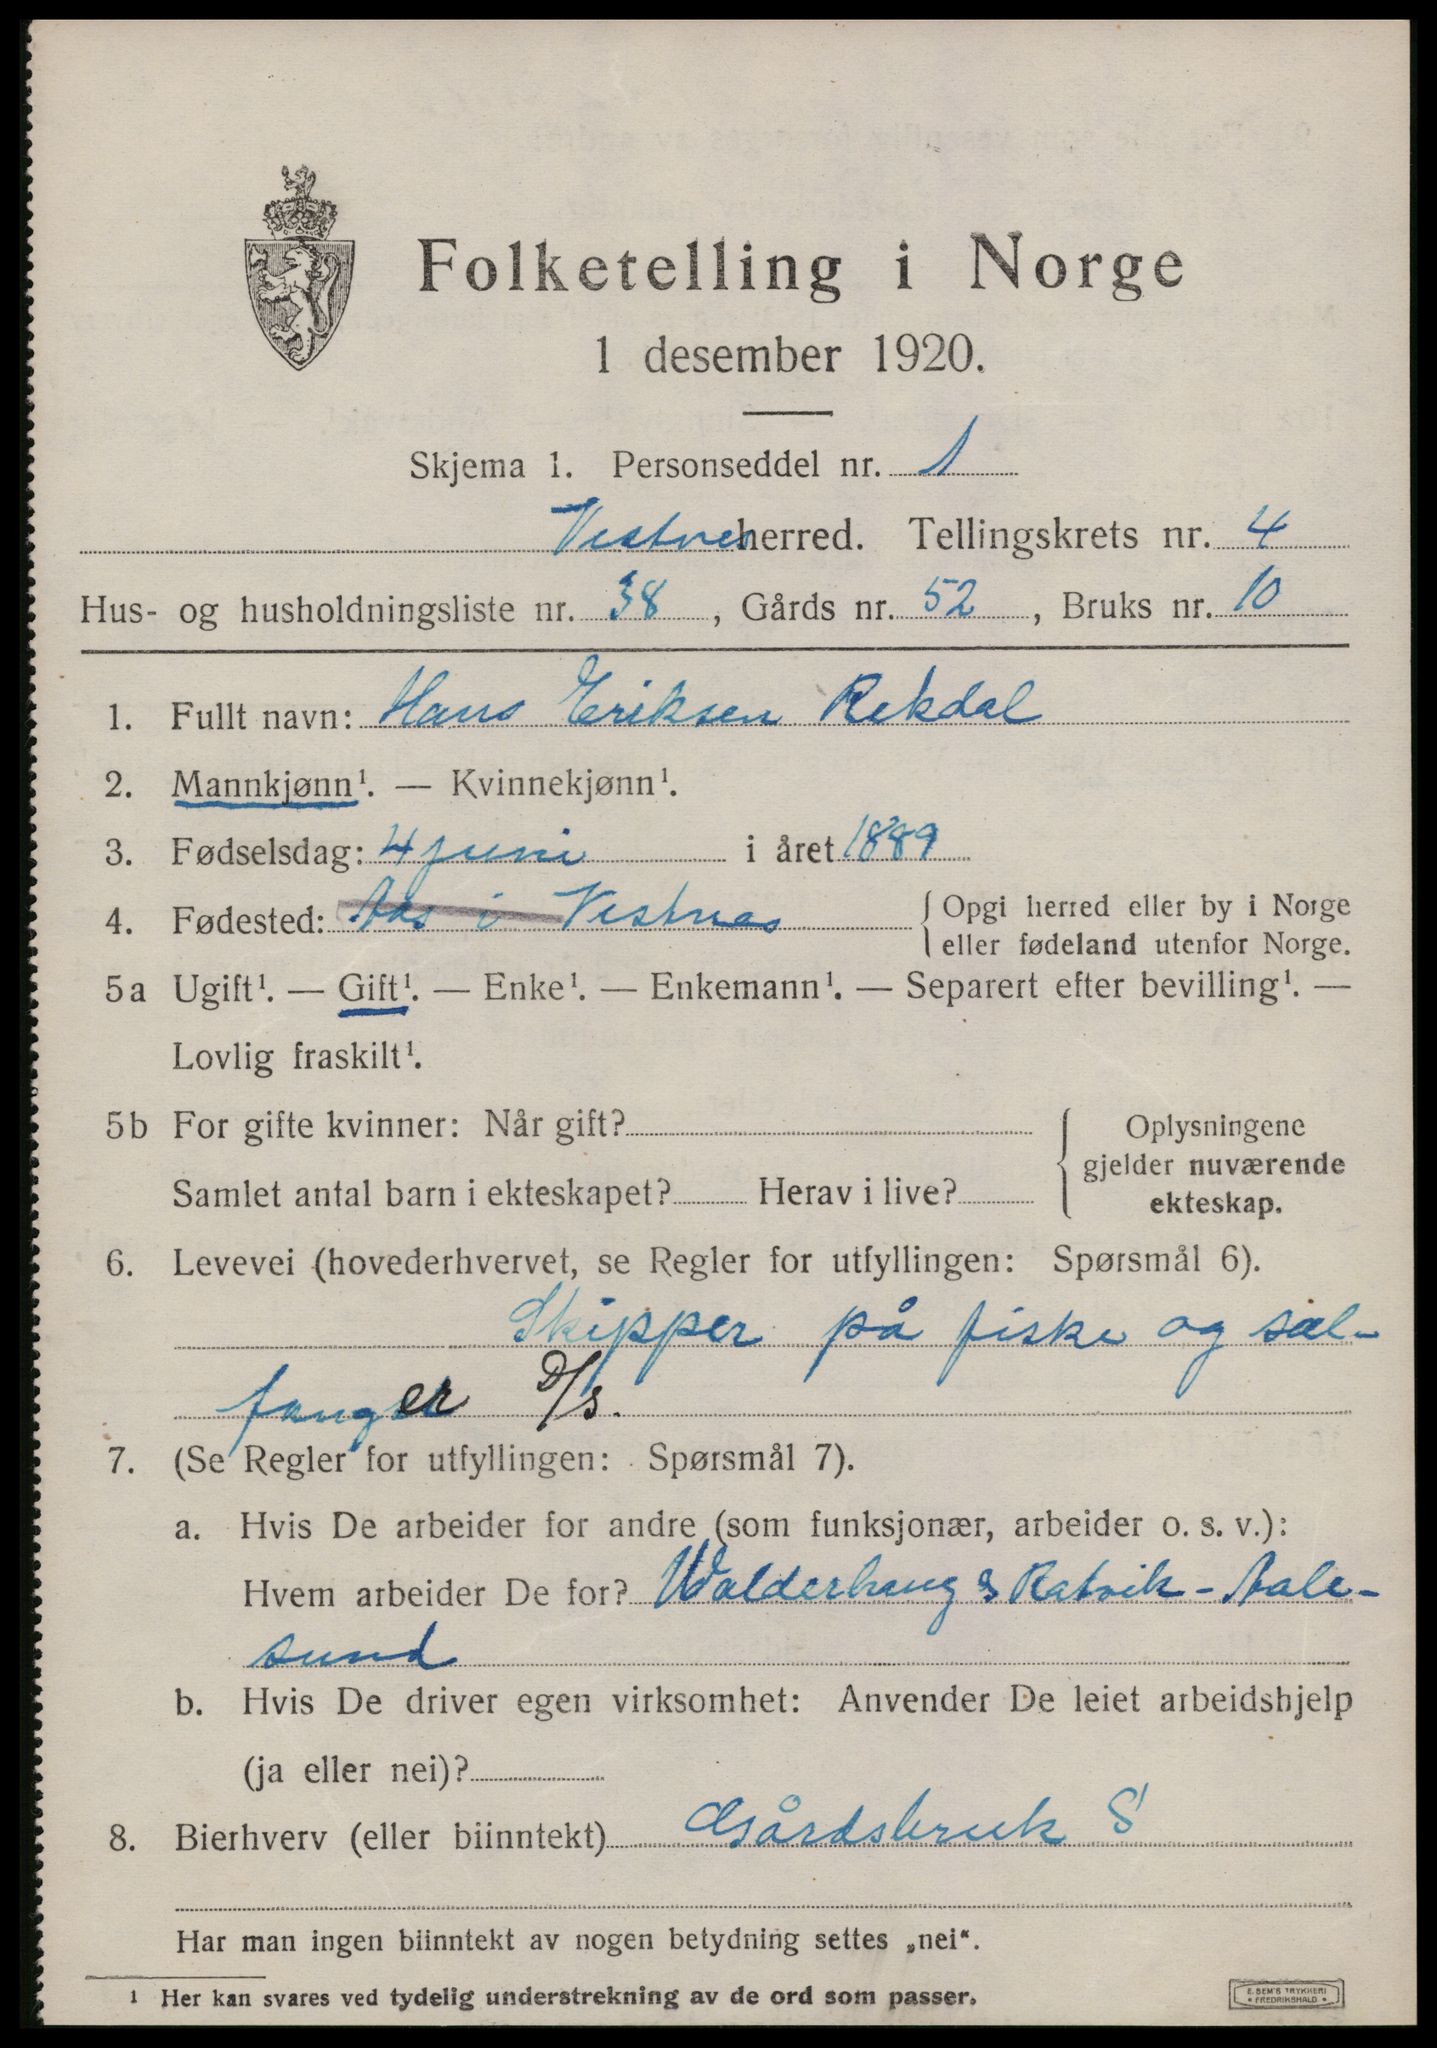 Folketelling i Norge
1 desember 1920.
Skjema 1. Personseddel nr. 1
Vestnes herred. Tellingskrets nr. 4
Hus- og husholdningsliste nr. 38, Gårds nr. 52, Bruks nr. 10
1. Fullt navn: Hans Eriksen Rekdal
2. Mannkjønn¹. — Kvinnekjønn¹.
3. Fødselsdag: 4 juni i året 1889
4. Fødested: Aas i Vestnes { Opgi herred eller by i Norge
eller fødeland utenfor Norge.
5a Ugift¹. — Gift¹. — Enke¹. — Enkemann¹. — Separert efter bevilling¹. —
Lovlig fraskilt¹.
5b For gifte kvinner: Når gift?
Samlet antal barn i ekteskapet? Herav i live?
{ Oplysningene
gjelder nuværende
ekteskap.
6. Levevei (hovederhvervet, se Regler for utfyllingen: Spørsmål 6).
Skipper på fiske og sæl-
fanger D/S.
7. (Se Regler for utfyllingen: Spørsmål 7).
a. Hvis De arbeider for andre (som funksjonær, arbeider o. s. v.):
Hvem arbeider De for? Walderhaug & Ratvik - Aale-
sund
b. Hvis De driver egen virksomhet: Anvender De leiet arbeidshjelp
(ja eller nei)?
8. Bierhverv (eller biinntekt) Gårdsbruk S
Har man ingen biinntekt av nogen betydning settes „nei“.
¹ Her kan svares ved tydelig understrekning av de ord som passer.
E. SEM'S TRYKKERI
• FREDRIKSHALD •